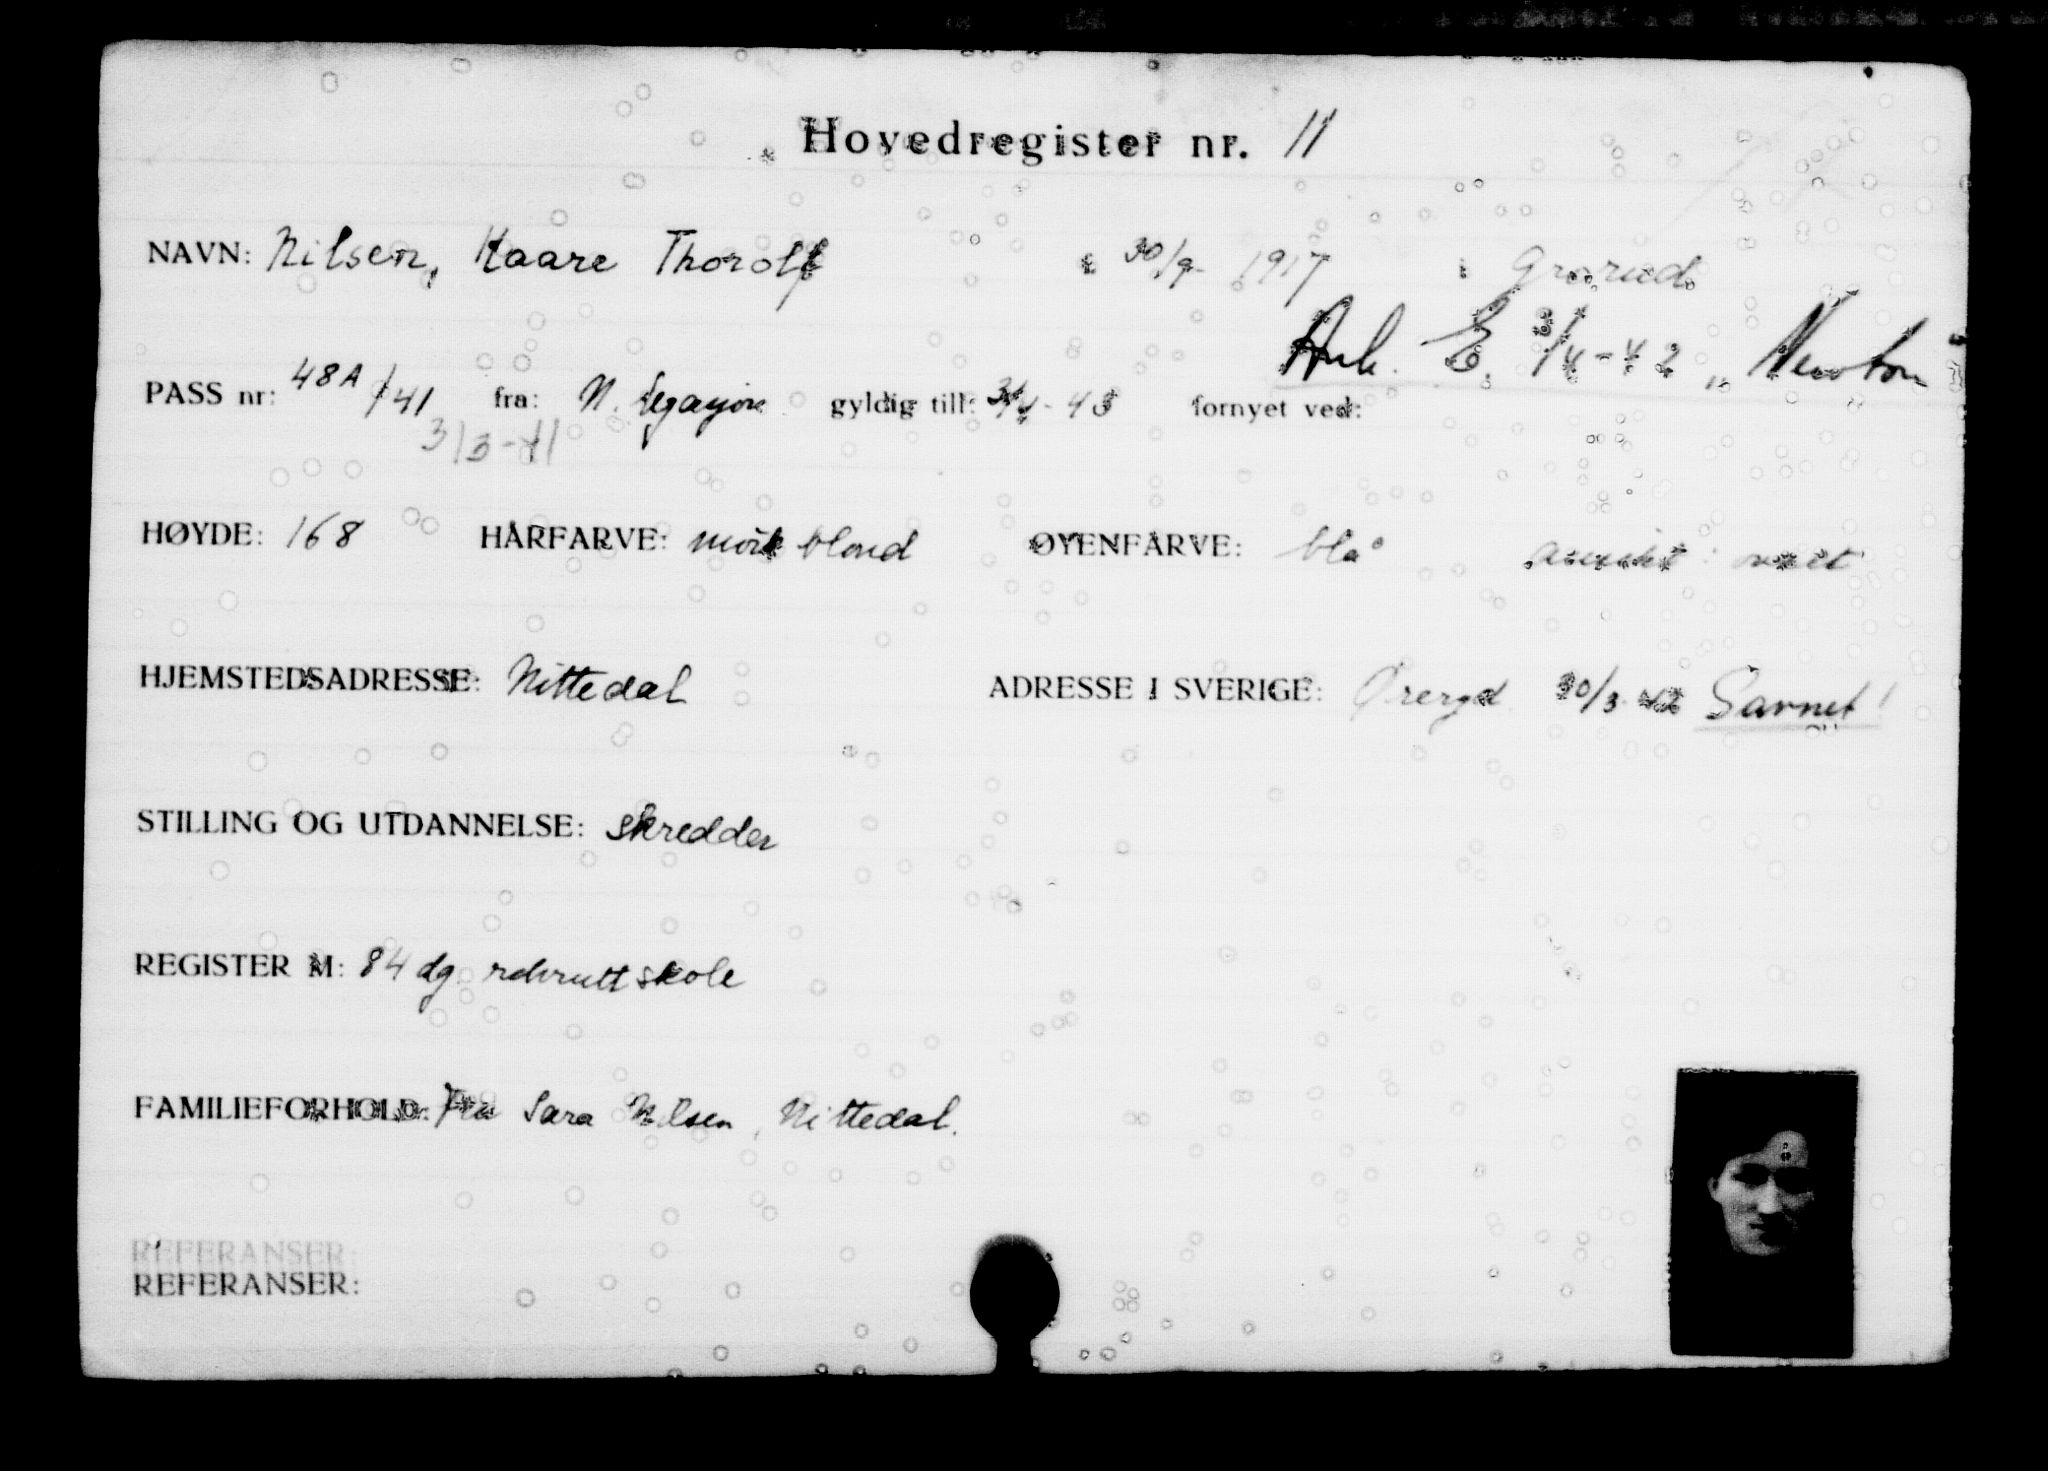 Hovedregister nr. 11
NAVN: Nilsen, Kaare Thorolf 30/9- 1917 i Grorud
Ank. E. 3/4-42 "Newton"
PASS nr: 48A/41 fra: N. Legasjon gyldig till: 3/4-43 fornyet ved:
3/3-41
HØYDE: 168 HÅRFARVE: mørk blond ØYENFARVE: blå ansikt: ovalt
HJEMSTEDSADRESSE: Nittedal ADRESSE I SVERIGE: 30/3 42 Savnet!
STILLING OG UTDANNELSE: skredder
REGISTER M: 84 dg. rekruttskole
FAMILIEFORHOLD: Fru Sara Nilsen, Nittedal.
REFERANSER:
REFERANSER: